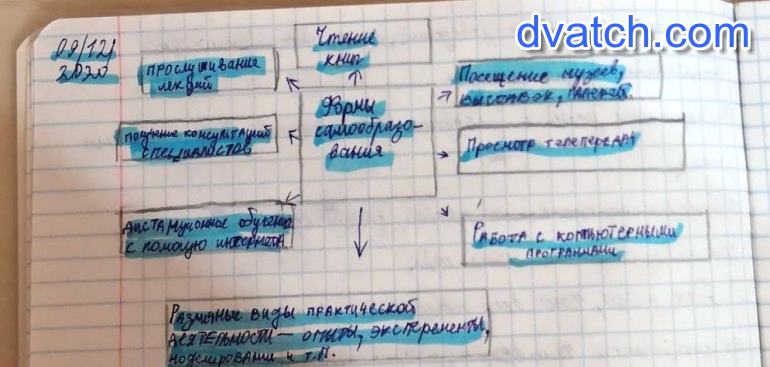 dvatch.com
09/12/
2020
Прослушивание
лекций
Чтение
книг
Посещение музеев,
выставок, галерей.
получение консультаций
специалистов
Формы
самообразо-
вания
Просмотр телепередач
дистанционное обучение
с помощю интернета
Работа с компютерными
программами
Различные виды практической
деятельности — опыты, эксперементы,
моделировами и т.п.